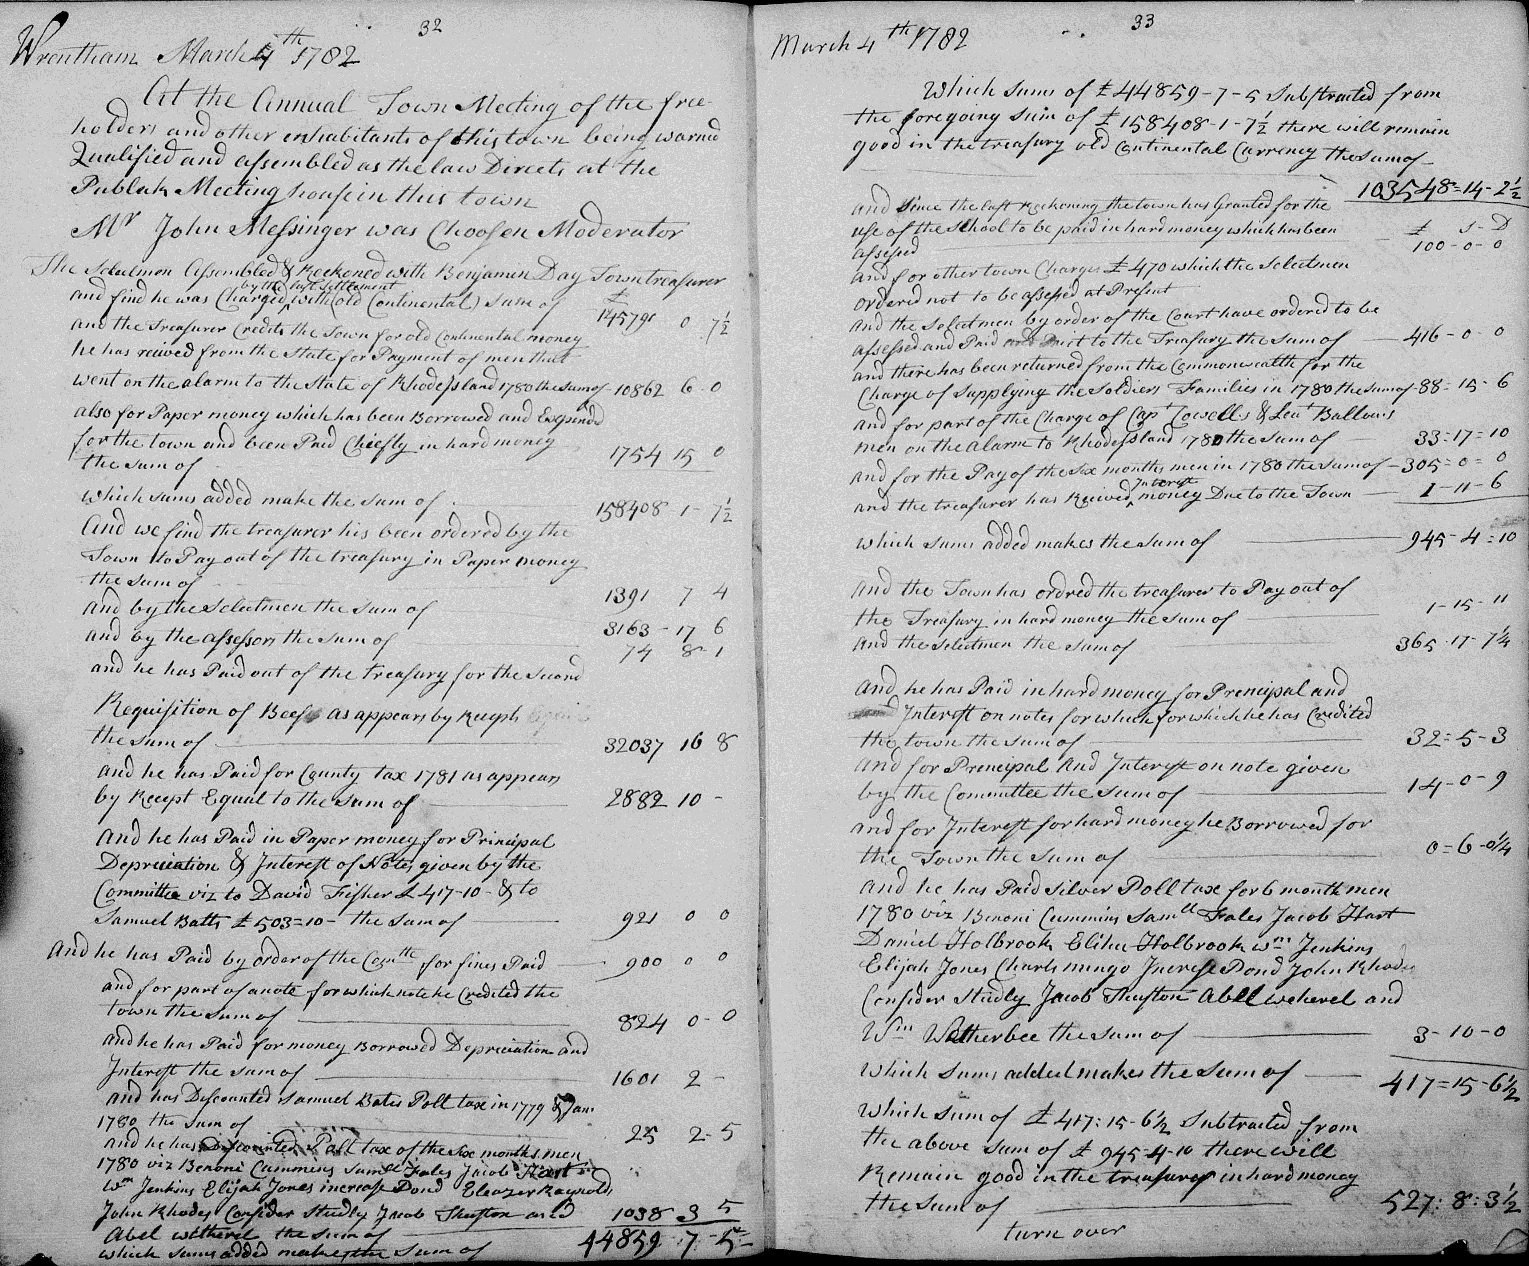 32
Wrentham March 4th 1782
At the Annual Town Meeting of the free-
holders and other inhabitants of this town being warned
Qualified and assembled as the law Directs at the
Publick Meeting house in this town
Mr John Messinger was Choosen Moderator
The Selectmen Assembled & Reckoned with Benjamin Day Town treasurer
by the last Settlement
and find he was Charged with (old Continental) Sum of £ 145791 0 7½
and the Treasurer Credits the Town for old Continental money
he has reeived from the State for Payment of men that
went on the alarm to the State of Rhode Island 1780 the sum of 10862 6 - 0
also for Paper money which has been Borrowed and Expended
for the town and been Paid Chiefly in hard money
the sum of 1754 15 0
which sums added make the sum of 158408 1 - 7½
And we find the treasurer his been ordered by the
Town to Pay out of the treasury in Paper money
the sum of 1391 7 4
and by the Selectmen the sum of 3163 - 17 6
and by the assessors the sum of 74 8 - 1
and he has Paid out of the treasury for the Second
Requisition of Beef as appears by Receipts
the sum of 32037 16 8
and he has Paid for County tax 1781 as appears
by Receipt Equal to the sum of 2882 10 -
and he has Paid in Paper money for Principal
Depreciation & Interest of Notes given by the
Committee viz to David Fisher £ 417-10 - & to
Samuel Batts £ 503=10 - the sum of 921 0 0
And he has Paid by order of the Comtth for fines Paid 900 0 0
and for part of a note for which note he Credited the
town the sum of 824 0 - 0
and he has Paid for money Borrowed Depreciation and
Interest the sum of 1601 2 -
and has Discounted Samuel Bates Poll tax in 1779 & Jan
1780 the sum of 25 2 - 5
and he has Discounted Poll tax of the Six months men
1780 viz Benoni Cummins Samll Fales Jacob Hart
Wm Jenkins Elijah Jones increase Pond Eleazer Raynolds
John Rhodes Consider Studly Jacob Thurston and 1038 3 5
Abel witherel the sum of
which sums added make the sum of 44859 - 7 - 5
33
March 4th 1782
Which sums of £44859-7-5 Substracted from
the foregoing sum of £158408-1-7½ there will remain
good in the treasury old Continental Currency the sum of
103548=14-2½
and Since the last Reckoning the town has Granted for the
use of the School to be paid in hard money which has been £ S - D
assessed 100-0-0
and for other town Charges £470 which the Selectmen
ordered not to be assessed at Present
and the Selectmen by order of the Court have ordered to be
assessed and Paid to the Treasury the Sum of 416-0-0
and there has been returned from the Commonwealth for the
Charge of Supplying the Soldiers Families in 1780 the sum of 88=15-6
and for part of the Charge of Capt Cowells & Leut Ballous
men on the Alarm to Rhode Island 1780 the sum of 33=17=10
and for the Pay of the Six months men in 1780 the sum of 305=0=0
Interest
and the treasurer has Received money Due to the Town 1-11-6
which sums added makes the Sum of 945-4=10
and the Town has ordred the treasurer to Pay out of
the Treasury in hard money the sum of 1-15-11
and the Selectmen the sum of 365-17-7¼
and he has Paid in hard money for Prencipal and
Interest on notes for which for which he has Credited
the town the sum of 32=5-3
and for Prencipal And Interest on note given
by the Committee the sum of 14-0-9
and for Interest for hard money he Borrowed for
the Town the Sum of 0=6-0¼
and he has Paid Silver Poll tax for 6 month men
1780 viz Benoni Cummins Samll Fales Jacob Hart
Daniel Holbrook Elihu Holbrook wm Jenkins
Elijah Jones Charls mingo Increse Pond John Rhodes
Consider Studly Jacob Thurston Abell wetherel and
Wm Wetherbee the sum of 3-10-0
which sums added makes the sum of 417=15-6½
which sum of £417:15-6½ Subtracted from
the above sum of £945-4-10 there will
Remain good in the treasury in hard money
the sum of 527:8:3½
turn over